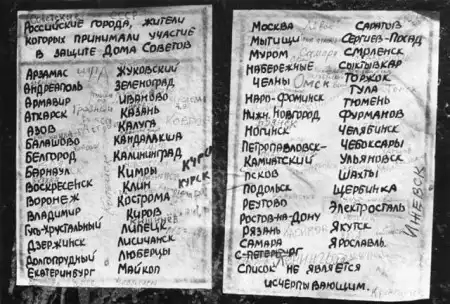 Российские города, жители
которых принимали участие
в защите Дома Советов
Арзамас
Андреаполь
Армавир
Аткарск
Азов
Балашово
Белгород
Барнаул
Воскресенск
Воронеж
Владимир
Гусь-Хрустальный
Дзержинск
Долгопрудный
Екатеринбург
Жуковский
Зеленоград
Иваново
Казань
Калуга
Кандалакша
Калининград
Кимры
Клин
Кострома
Киров
Липецк
Лисичанск
Люберцы
Майкоп
КУРСК
Москва
Мытищи
Муром
Набережные
Челны
Омск
Наро-Фоминск
Нижн. Новгород
Ногинск
Петропавловск-
Камчатский
Псков
Подольск
Реутово
Ростов-на-Дону
Рязань
Самара
С-Петербург
Саратов
Сергиев-Посад
Смоленск
Сыктывкар
Торжок
Тула
Тюмень
Фурманов
Челябинск
Чебоксары
Ульяновск
Шахты
Щербинка
Электросталь
Якутск
Ярославль
ИЖЕВСК
Список не является
исчерпывающим.